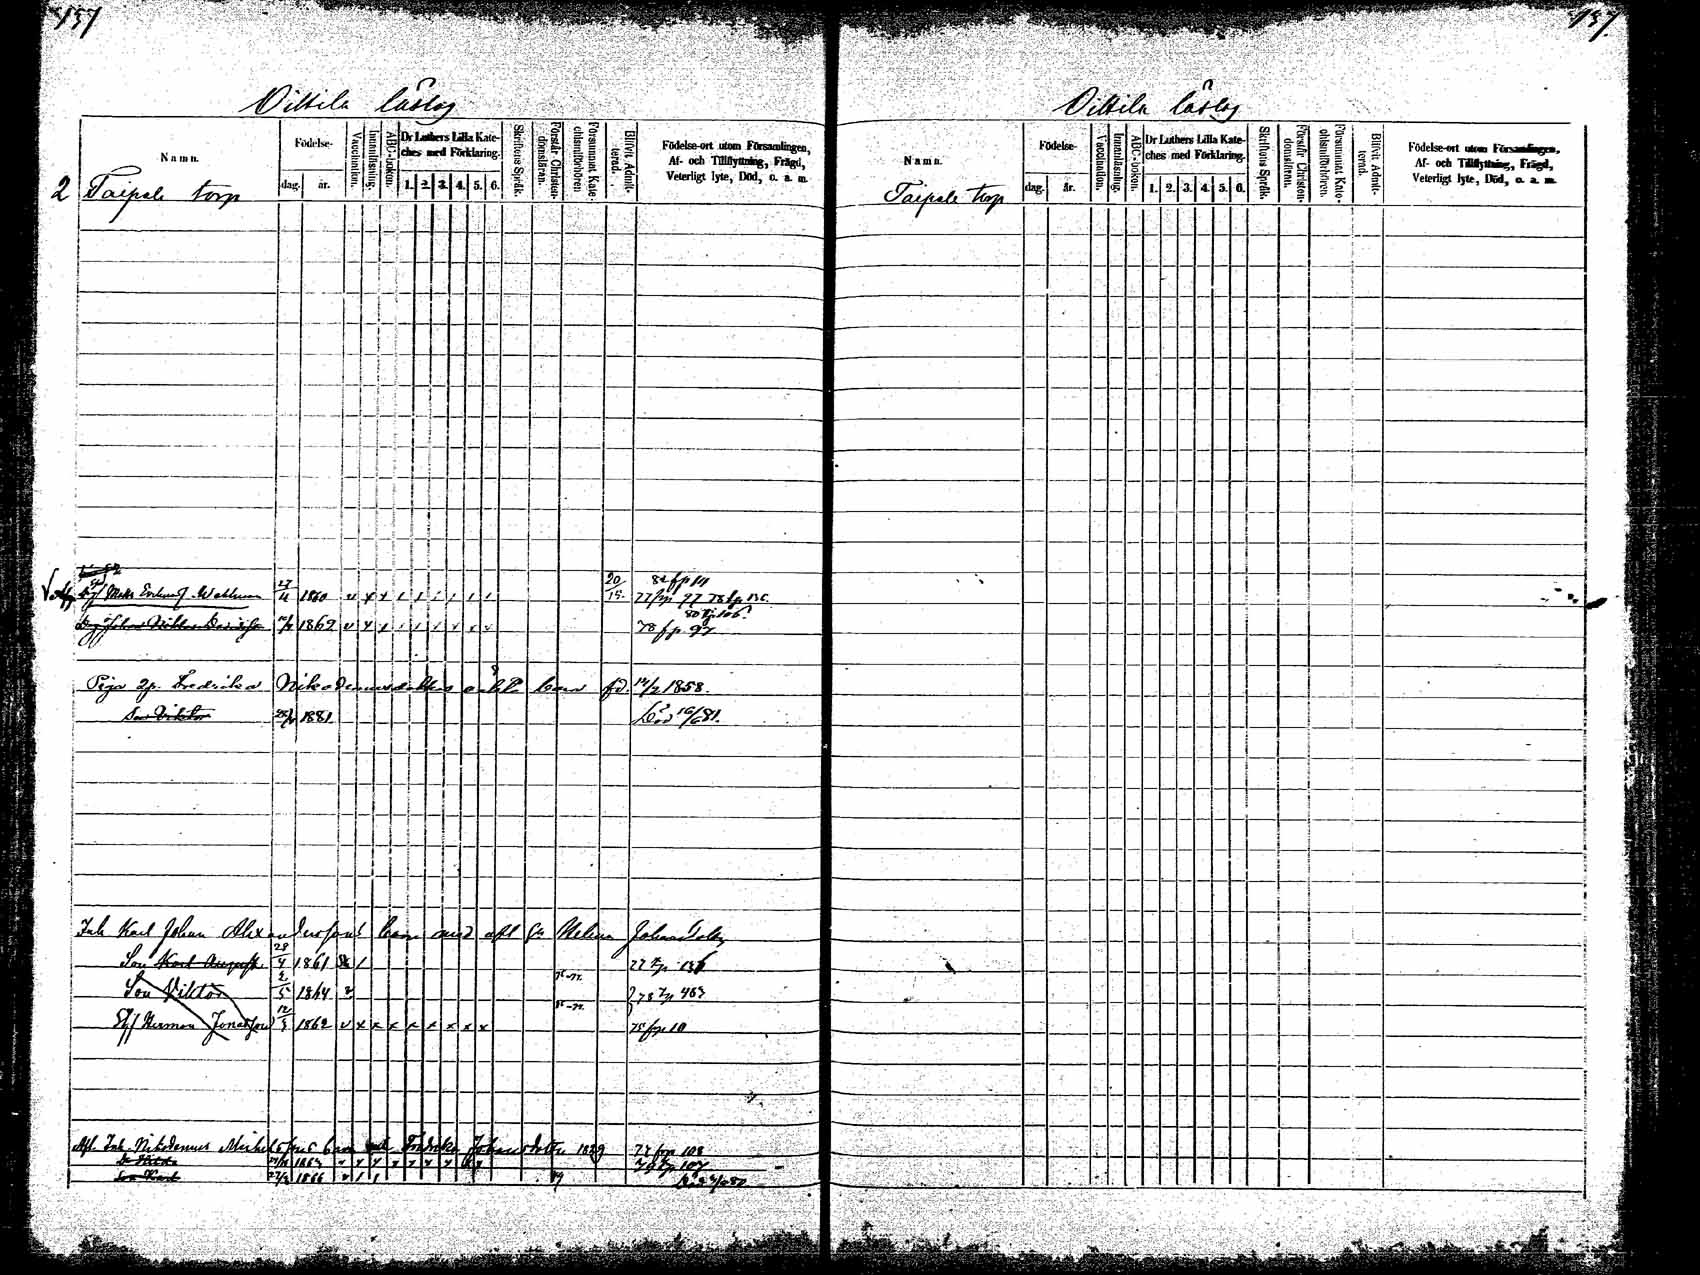 157
Vittila låslag
Namn.
Födelse-
dag. år.
Vaccination.
Innanläsning.
ABC-boken.
Dr Luthers Lilla Kate-
ches med Förklaring.
1. 2. 3. 4. 5. 6.
Skriftens Språk.
Förstår Christen-
domsläran.
Försummat Kate-
chismiförhören.
Blifvit Admit-
terad.
Födelse-ort utom Församlingen,
Af- och Tillflyttning, Frägd,
Veterligt lyte, Död, o. a. m.
2 Taipale torp
82 fp 11
27/4 1860 v x x 1 1 1 1 1 1 20/15. 77 fp 97 78 fp
80 fp 106.
1862 v x x 78 fp 97
Piga 2p. Fredrika Nikodemusdotters oäkta barn fd. 12/2 1858.
Son Viktor 1881 Död 16/6 81.
Inh Karl Johan Alexandersons barn med afl Helena Johansdotter
Son Karl August 28/4 1861 77 fp 136
Son Viktor 2/5 1864 v 78 fp 463
Herman Jonasson 12/3 1862 v x x x x x x x x 75 fp 10
Afl. Inh. Nikodemus Michelssons barn Fredrika Johansdotter 1829 77 fp 108
79 fp 107
Son Karl 1866 v 1 1
157.
Vittila låslag
Namn.
Födelse-
dag. år.
Vaccination.
Innanläsning.
ABC-boken.
Dr Luthers Lilla Kate-
ches med Förklaring.
1. 2. 3. 4. 5. 6.
Skriftens Språk.
Förstår Christen-
domsläran.
Försummat Kate-
chismiförhören.
Blifvit Admit-
terad.
Födelse-ort utom Församlingen,
Af- och Tillflyttning, Frägd,
Veterligt lyte, Död, o. a. m.
Taipale torp